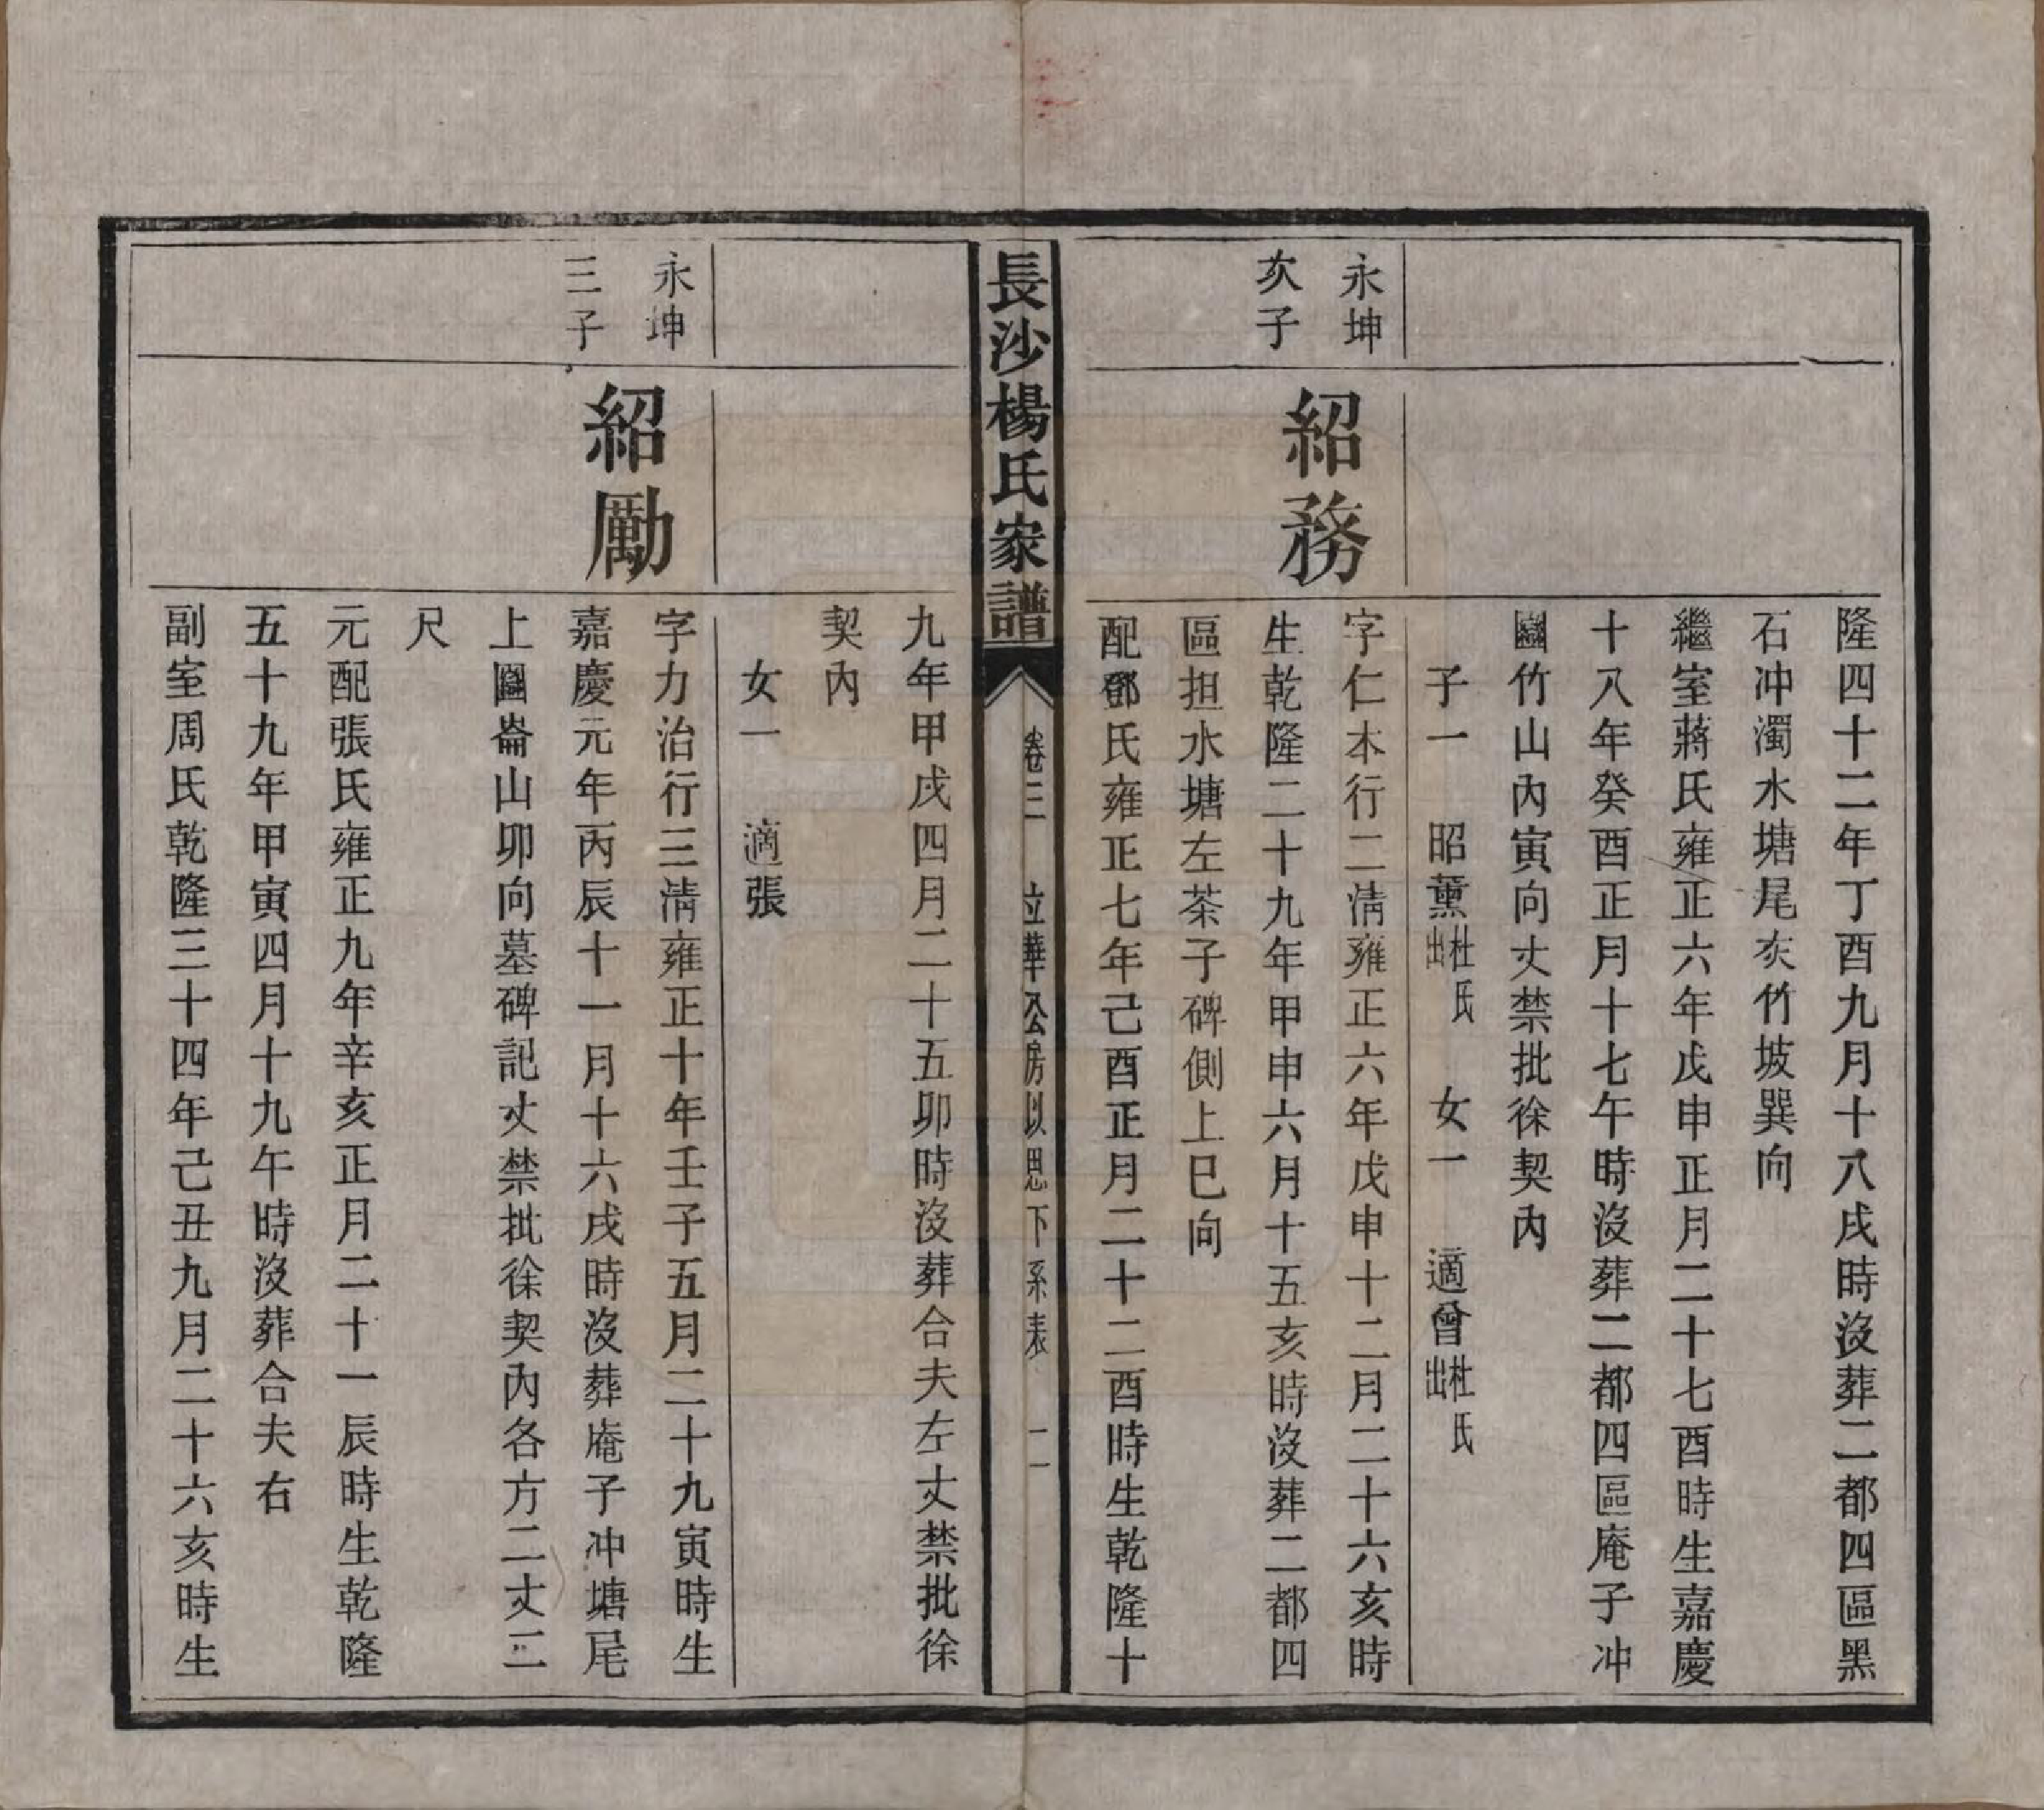 隆四十二年丁酉九月十八戌時沒葬二都四區黑
石冲濁水塘尾灰竹坡巽向
繼室蔣氏雍正六年戊申正月二十七酉時生嘉慶
十八年癸酉正月十七午時沒葬二都四區庵子冲
竹山內寅向丈禁批徐契內
子一 昭薰杜氏出 女一 適曾杜氏出
永坤
次子
紹務
字仁本行二淸雍正六年戊申十二月二十六亥時
生乾隆二十九年甲申六月十五亥時沒葬二都四
區担水塘左茶子碑側上巳向
配鄧氏雍正七年己酉正月二十二酉時生乾隆十
長沙楊氏家譜 卷三 位華公房以思下系表 二一
九年甲戌四月二十五卯時沒葬合夫左丈禁批徐
契內
女一 適張
永坤
三子
紹勵
字力治行三淸雍正十年壬子五月二十九寅時生
嘉慶元年丙辰十一月十六戌時沒葬庵子冲塘尾
上圖崙山卯向墓碑記丈禁批徐契內各方二丈二
尺
元配張氏雍正九年辛亥正月二十一辰時生乾隆
五十九年甲寅四月十九午時沒葬合夫右
副室周氏乾隆三十四年己丑九月二十六亥時生